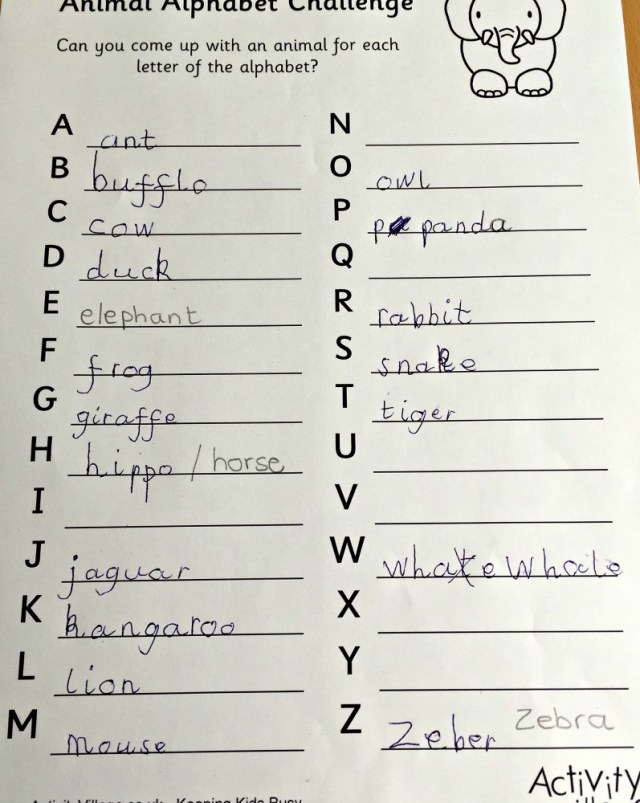 Animal Alphabet Challenge
Can you come up with an animal for each
letter of the alphabet?
A ant
B bufflo
C cow
D duck
E elephant
F frog
G giraffe
H hippo / horse
I
J jaguar
K kangaroo
L lion
M mouse
N
O owl
P panda
Q
R rabbit
S snake
T tiger
U
V
W whate whale
X
Y
Z Zeber Zebra
Activity
Activity Village.co.uk - Keeping Kids Busy